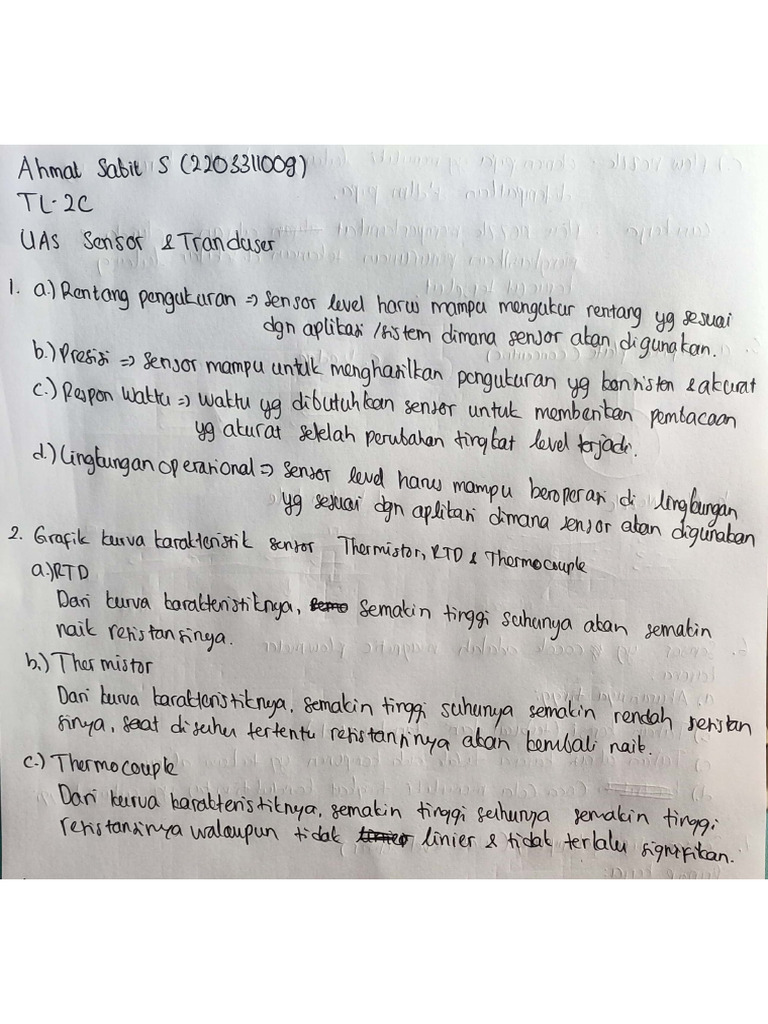 Ahmat Sabit S (2203311009)
TL-2C
UAS Sensor & Tranduser
1. a.) Rentang pengukuran => sensor level harus mampu mengukur rentang yg sesuai
dgn aplikasi /sistem dimana sensor akan digunakan.
b.) Presisi => sensor mampu untuk menghasilkan pengukuran yg konsisten & akurat
c.) Respon Waktu => waktu yg dibutuhkan sensor untuk memberikan pembacaan
yg akurat setelah perubahan tingkat level terjadi.
d.) Lingkungan operasional => sensor level harus mampu beroperasi di lingkungan
yg sesuai dgn aplikasi dimana sensor akan digunakan
2. Grafik kurva karakteristik sensor Thermistor, RTD & Thermocouple
a.) RTD
Dari kurva karakteristiknya, semakin tinggi suhunya akan semakin
naik resistansinya.
b.) Thermistor
Dari kurva karakteristiknya, semakin tinggi suhunya semakin rendah resistan
sinya, saat di suhu tertentu resistansinya akan kembali naik.
c.) Thermocouple
Dari kurva karakteristiknya, semakin tinggi suhunya semakin tinggi
resistansinya walaupun tidak linier & tidak terlalu signifikan.